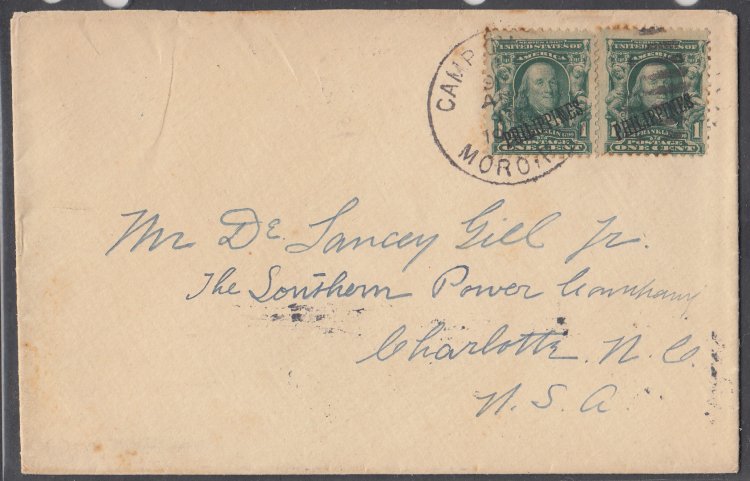 CAMP
MORON
UNITED STATES OF AMERICA
PHILIPPINES
FRANKLIN
1 POSTAGE 1
ONE CENT
UNITED STATES OF AMERICA
PHILIPPINES
FRANKLIN
1 POSTAGE 1
ONE CENT
Mr De Lancey Gill Jr.
The Southern Power Company
Charlotte, N. C.
U. S. A.